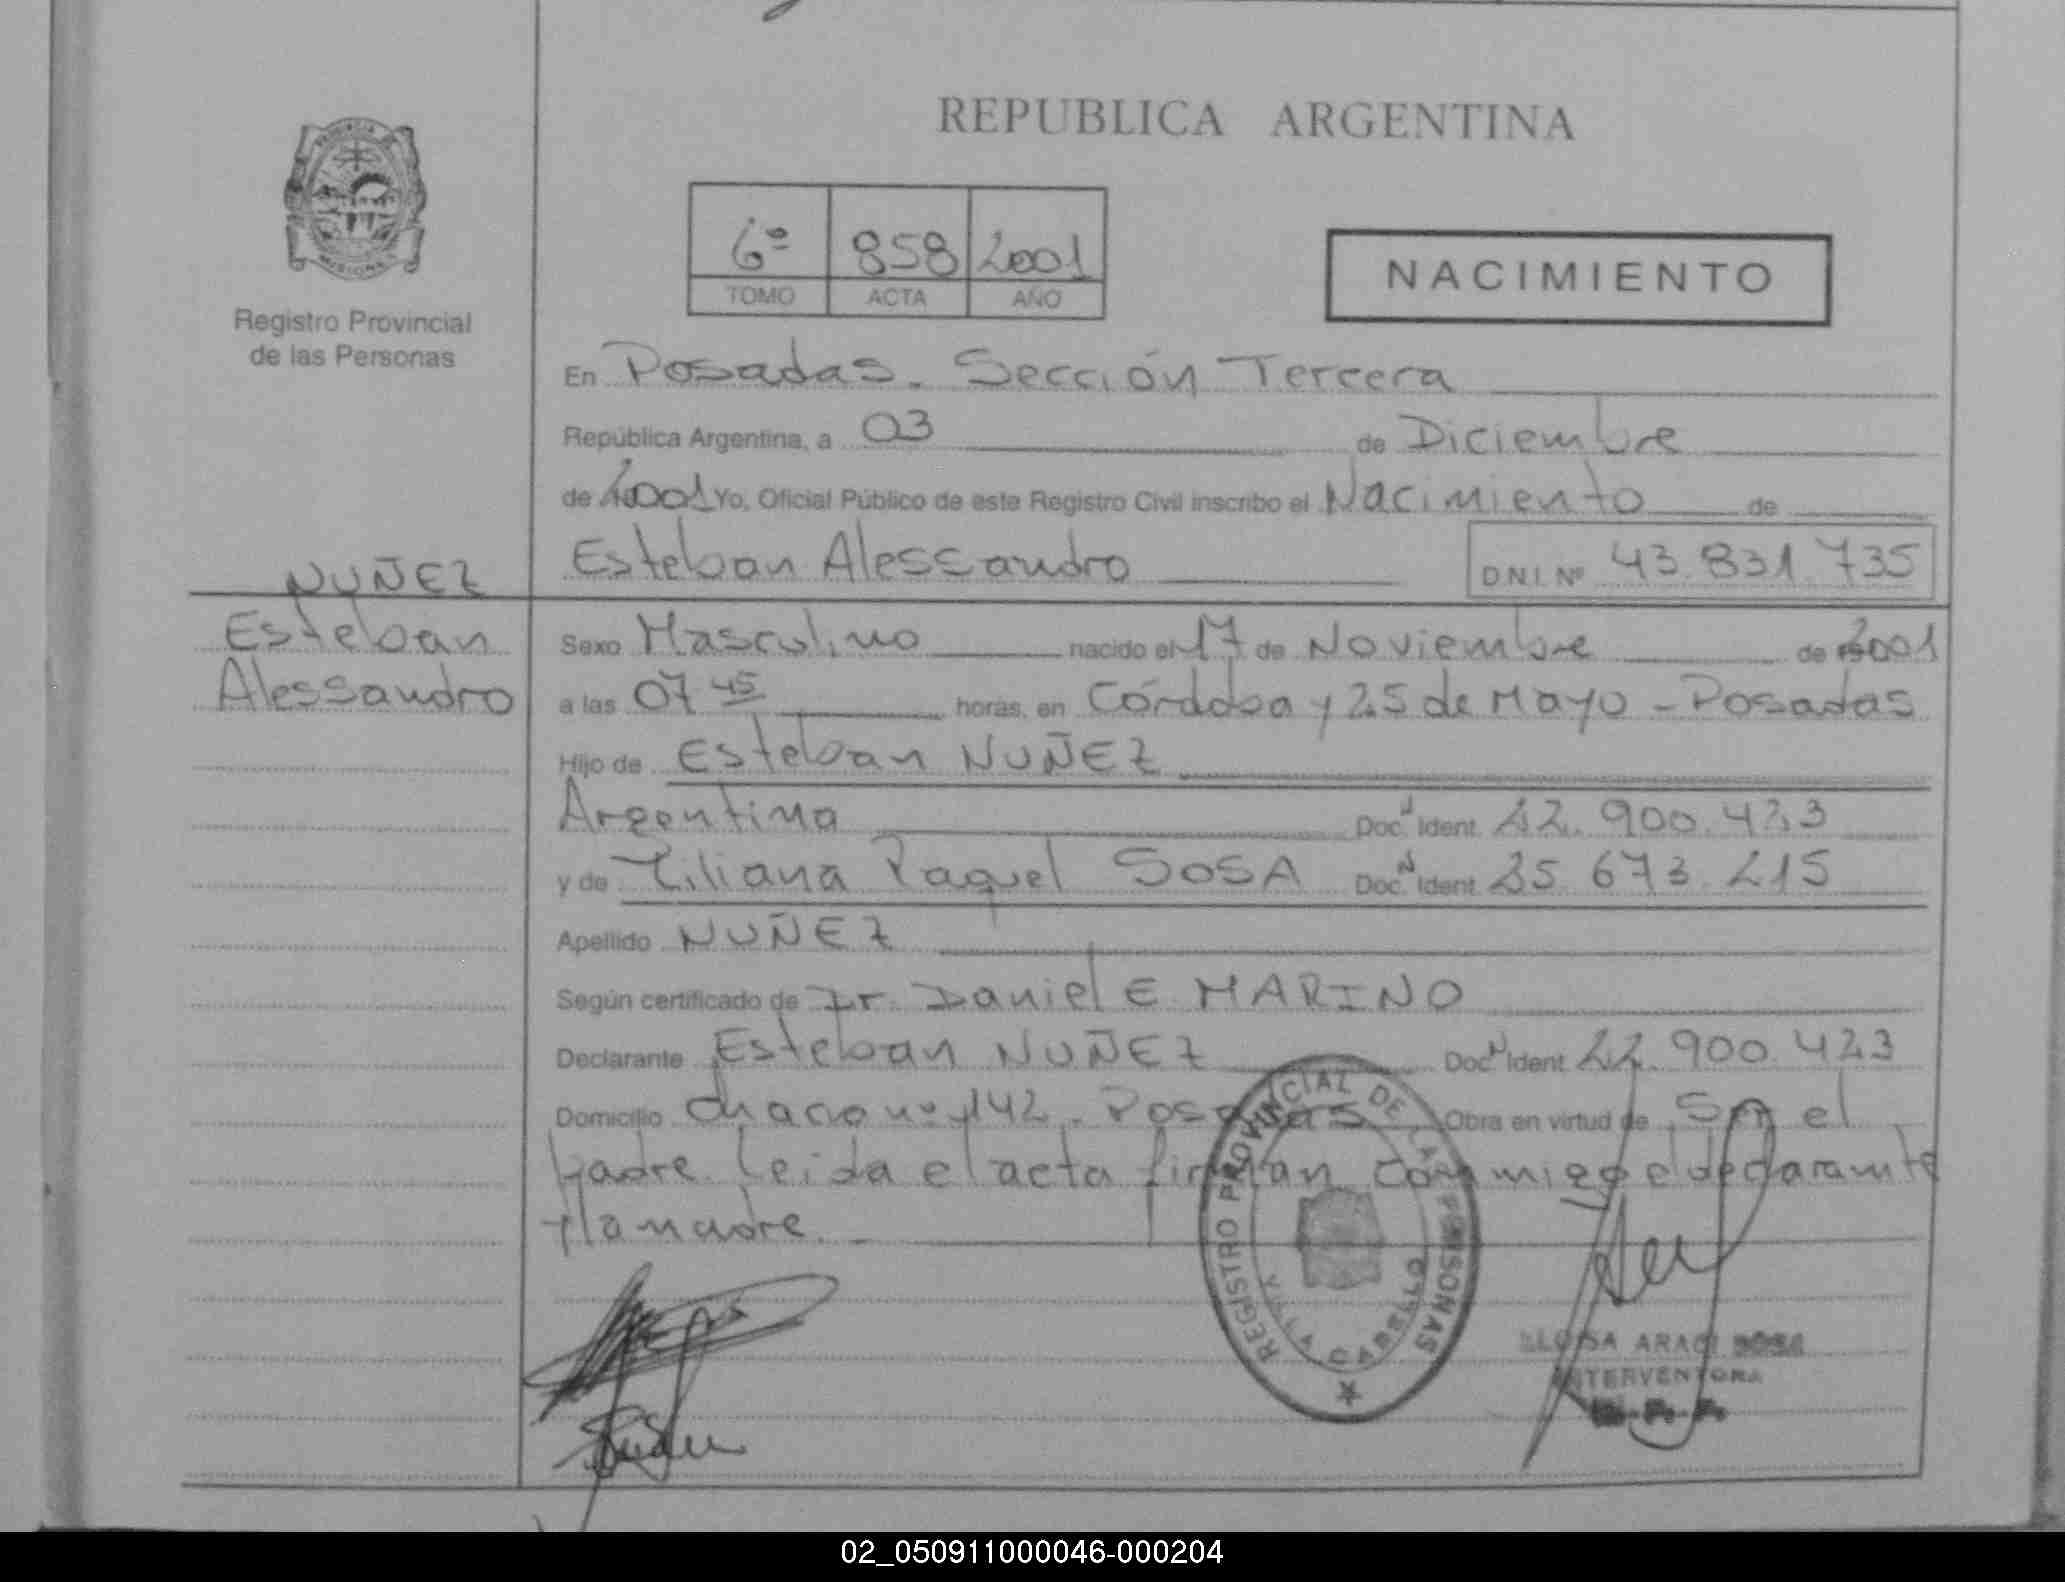 REPUBLICA ARGENTINA
PROVINCIA
MISIONES
Registro Provincial
de las Personas
6º 858 2001
TOMO ACTA AÑO
NACIMIENTO
En Posadas. Sección Tercera
República Argentina, a 03 de Diciembre
de 2001 Yo, Oficial Público de este Registro Civil inscribo el Nacimiento de
Esteban Alessandro D.N.I. Nº 43.831.735
NUÑEZ
Esteban
Alessandro
Sexo Masculino nacido el 17 de Noviembre de 2001
a las 07 45 horas, en Córdoba y 25 de Mayo - Posadas
Hijo de Esteban NUÑEZ
Argentina Doc. Ident. 22.900.423
y de Liliana Raquel SOSA Doc. Ident. 25.673.215
Apellido NUÑEZ
Según certificado de Dr. Daniel E MARINO
Declarante Esteban NUÑEZ Doc. Ident. 22.900.423
Domicilio Chaco nº 142. Posadas Obra en virtud de Ser el
padre. Leida el acta firman conmigo el declarante
y la madre.
REGISTRO PROVINCIAL DE LAS PERSONAS
VILLA CABELLO
ELOISA ARACI SOSA
INTERVENTORA
R.P.P.
02_050911000046-000204